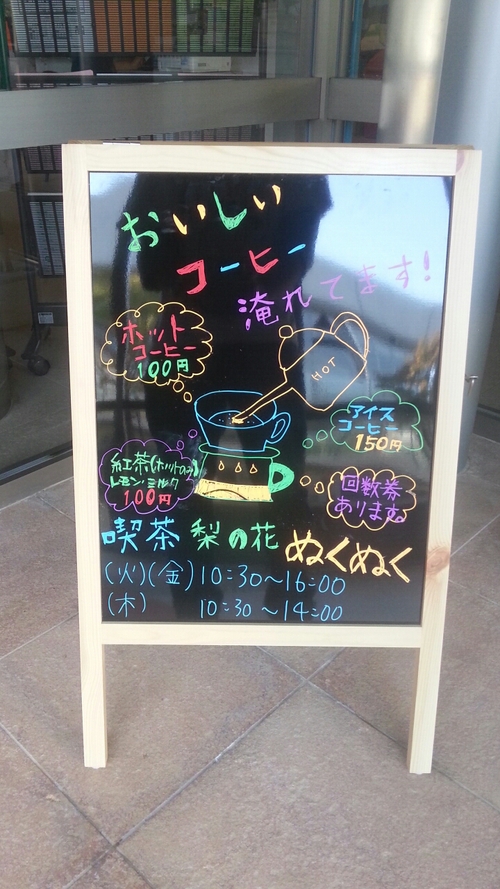 おいしい
コーヒー
淹れてます!
ホット
コーヒー
100円
HOT
アイス
コーヒー
150円
紅茶(ホットのみ)
レモン・ミルク
100円
回数券
あります。
喫茶 梨の花 ぬくぬく
(火)(金)10:30~16:00
(木) 10:30~14:00